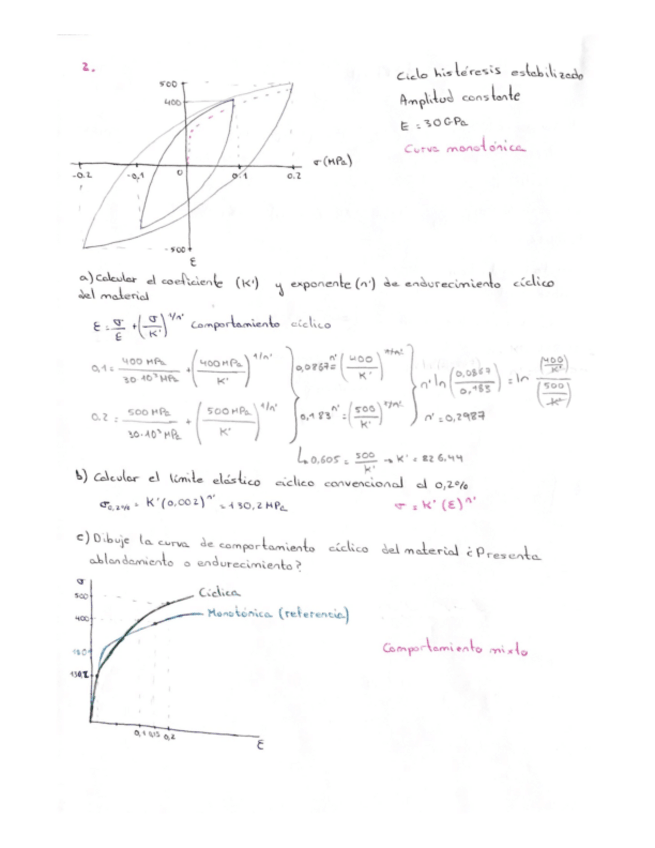 2.
500
400
-0.2
-0,1
0
0.1
0.2
σ (MPa)
-500
ε
Ciclo histéresis estabilizado
Amplitud constante
E = 30GPa
Curva monotónica
a) Calcular el coeficiente (K') y exponente (n') de endurecimiento cíclico
del material
ε = σ/E + (σ/K')^1/n' Comportamiento cíclico
0,1 = 400 MPa / 30·10³ MPa + (400 MPa / K')^1/n'
0.2 = 500 MPa / 30·10³ MPa + (500 MPa / K')^1/n'
0,0867^n' = (400/K')
0,183^n' = (500/K')
n' ln (0,0867 / 0,183) = ln
n' = 0,2987
↳ 0,605 = 500/K' → K' = 826.44
b) Calcular el límite elástico cíclico convencional al 0,2%
σ0,2% = K' (0,002)^n' = 130,2 MPa
σ = K' (ε)^n'
c) Dibuje la curva de comportamiento cíclico del material ¿Presenta
ablandamiento o endurecimiento?
σ
500
400
130,2
Cíclica
Monotónica (referencia)
0,1 0,15 0,2
ε
Comportamiento mixto